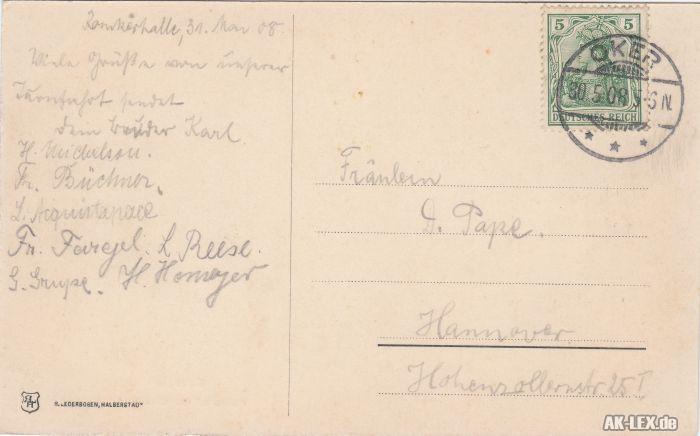 Romkerhalle, 31. Mai 08.
Viele Grüße von unserer
Turnfahrt sendet
dein Bruder Karl.
H. Michelson.
Fr. Büchner.
L. Acquistapace
Fr. L. Reese.
G. Grupe. H. Homeyer
S. LEDERBOGEN, HALBERSTADT
5 5
DEUTSCHES REICH
OKER
30.5.08 5-6 N.
Fräulein
D. Pape.
Hannover.
Hohenzollernstr 25 I
AK-LEX.de